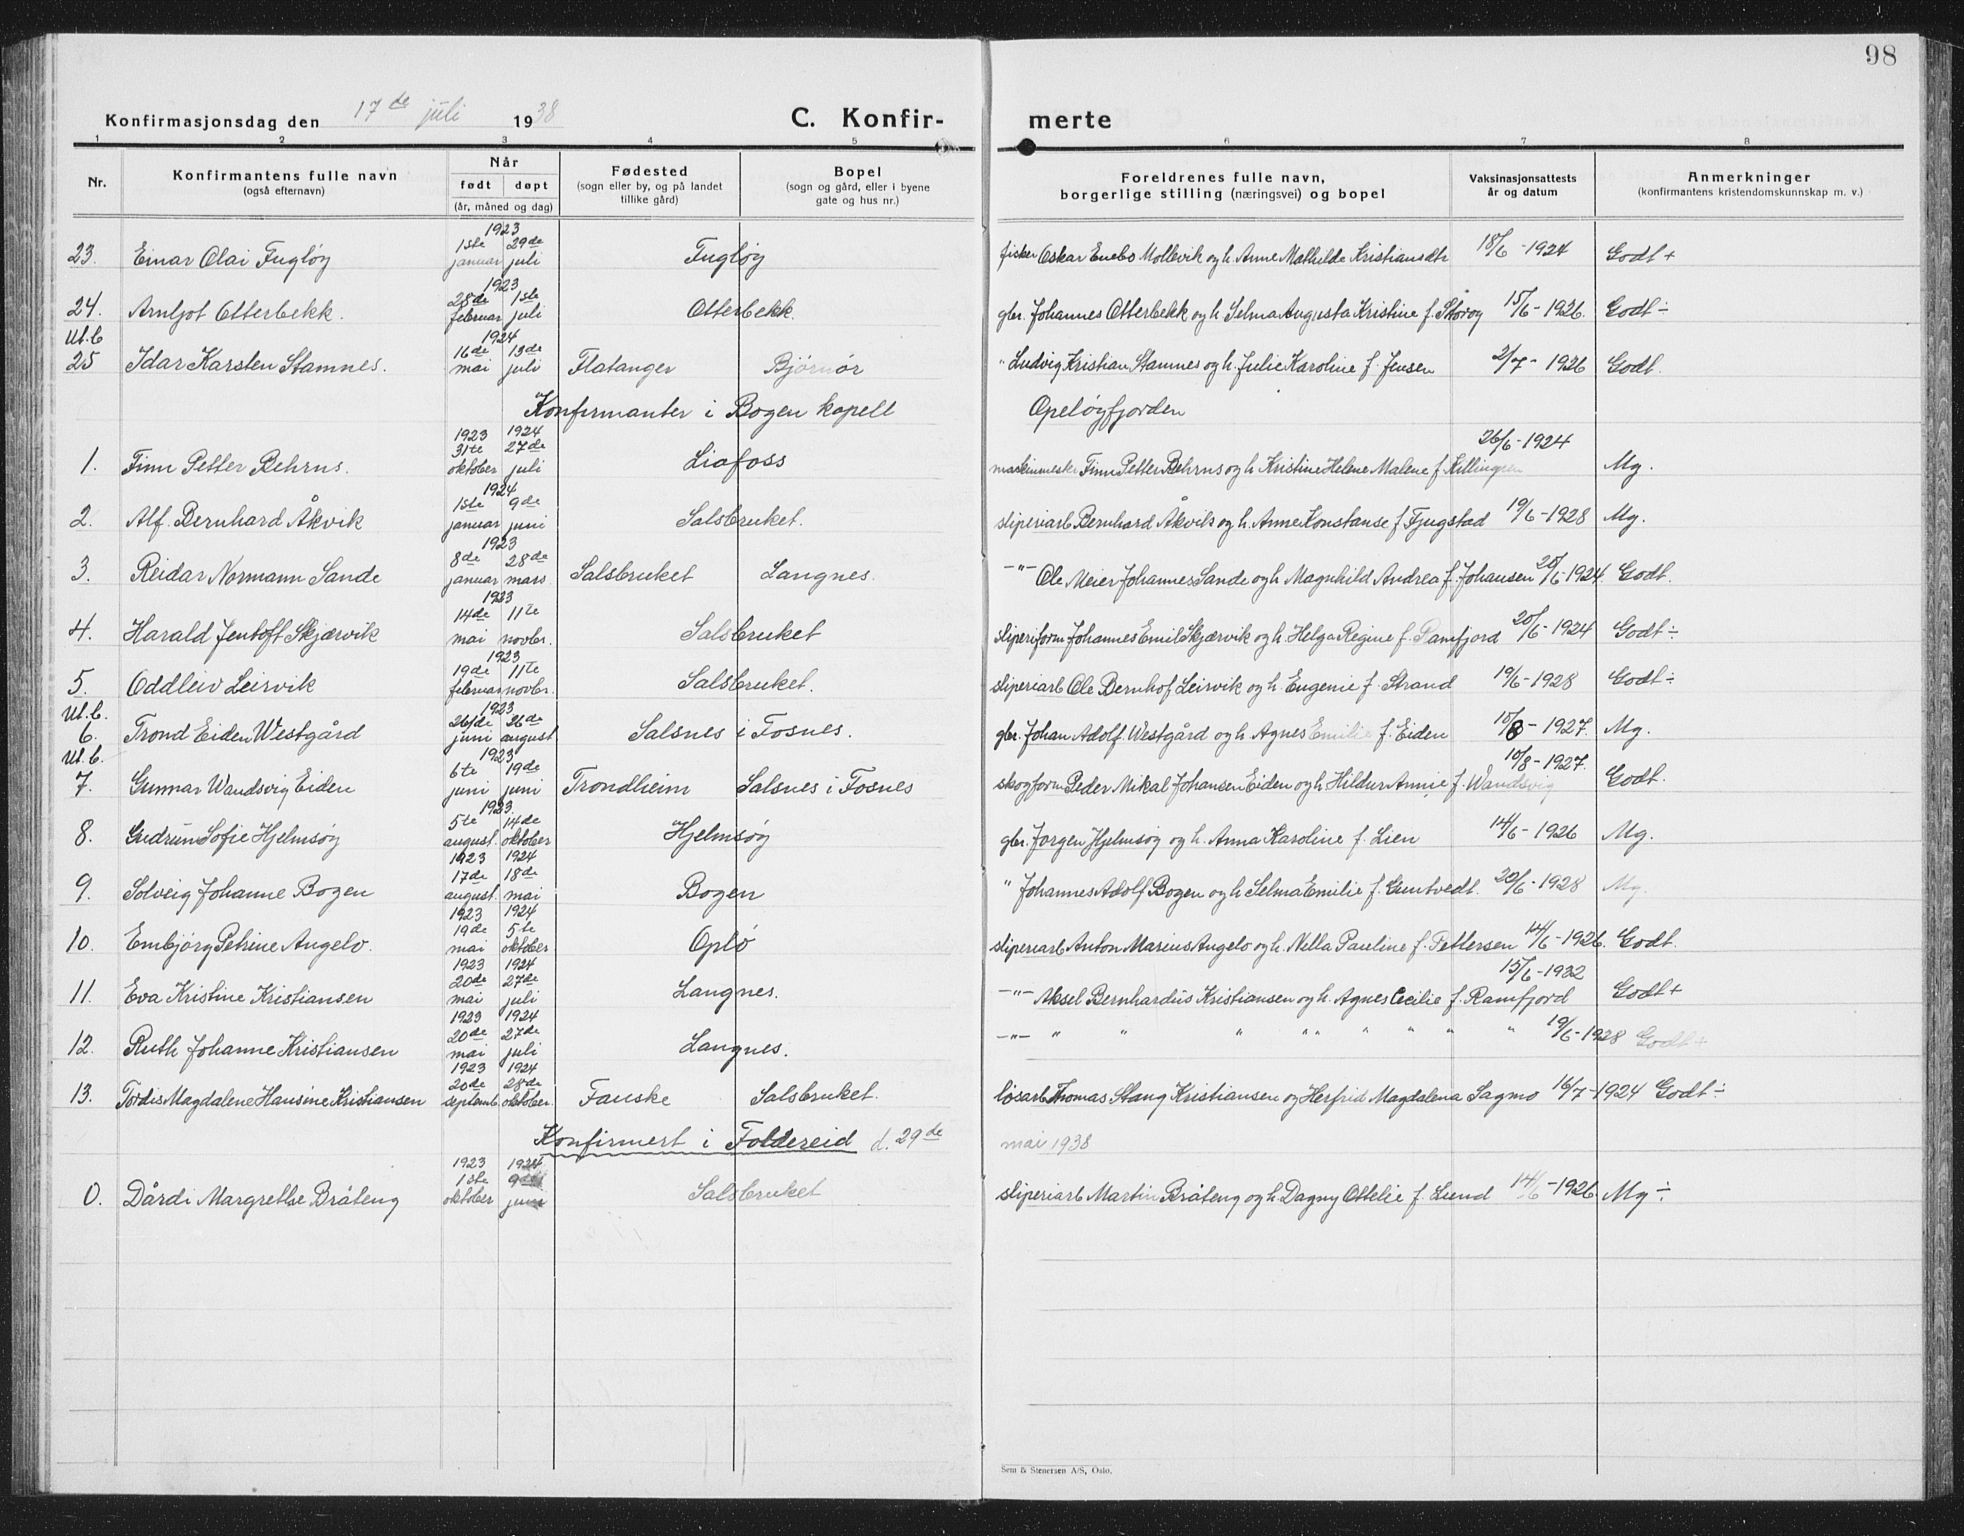 98
Konfirmasjonsdag den 17de juli 1938 C. Konfir- merte
1 2 3 4 5 6 7 8
Nr. Konfirmantens fulle navn (også efternavn) Når født døpt (år, måned og dag) Fødested (sogn eller by, og på landet tillike gård) Bopel (sogn og gård, eller i byene gate og hus nr.) Foreldrenes fulle navn, borgerlige stilling (næringsvei) og bopel Vaksinasjonsattests år og datum Anmerkninger (konfirmantens kristendomskunnskap m. v.)
23. Einar Olai Fugløy 1923 1ste januar 29de juli Fugløy fisker Oskar Enebo Mollevik og h. Anne Mathilde Kristiansdtr 18/6-1924 Godt +
24. Arnljot Otterbekk. 1923 28de februar 1ste juli Otterbekk. gbr. Johannes Otterbekk og h Selma Augusta Kristine f. Storøy 15/6-1926. Godt ÷
Ut.b
25 Idar Karsten Stamnes. 1924 16de mai 13de juli Flatanger Bjørnør " Ludvig Kristian Stamnes og h. Julie Karoline f. Jensen 2/7-1926 Godt.
Konfirmanter i Bogen kapell Opeløyfjorden
1. Finn Petter Behrns. 1923 31te oktober 1924 27de juli Liafoss maskinmester Finn Petter Behrns og h Kristine Helene Malene f. Killingren 26/6-1924 Mg.
2. Alf Bernhard Åkvik 1924 1ste januar 9de juni Salsbruket. sliperiarb Bernhard Åkvik og h. Anne Konstanse f Fjugstad 19/6-1928 Mg.
3. Reidar Normann Sande 1923 8de januar 28de mars Salsbruket Langnes. -"- Ole Meier Johannes Sande og h Magnhild Andrea f. Johansen 20/6-1924. Godt.
4. Harald Jentoft Skjærvik 1923 14de mai 11te novbr. Salsbruket sliperiform Johannes Emil Skjærvik og h. Helga Regine f. Ramfjord 20/6-1924 Godt ÷
5. Oddleiv Leirvik 1923 19de februar 11te novbr. Salsbruket. sliperiarb Ole Bernhof Leirvik og h Eugenie f Strand 19/6-1928 Godt ÷
Ut.b.
6. Trond Eiden Westgård 1923 26de juni 26de august Salsnes i Fosnes. gbr. Johan Adolf Westgård og h Agnes Emilie f. Eiden 10/8-1927. Mg.
Ut.b.
7. Gunnar Wandsvig Eiden 1923 6te juni 19de juni Trondheim Salsnes i Fosnes skogform Peder Mikal Johansen Eiden og h Hildur Annie f. Wandsvig 10/8-1927. Godt.
8. Gudrun Sofie Hjelmsøy 1923. 5te august 14de oktober Hjelmsøy gbr. Jørgen Hjelmsøy og h. Anna Karoline f. Lien 14/6-1926 Mg.
9. Solveig Johanne Bogen 1923 17de august. 1924 18de mai Bogen " Johannes Adolf Bogen og h Selma Emilie f. Guntvedt. 20/6-1928 Mg.
10. Embjørg Petrine Angelo. 1923 19de mai 1924 5te oktober Oplø sliperiarb Anton Marius Angelo og h. Nella Pauline f. Pettersen 14/6-1926. Godt.
11. Eva Kristine Kristiansen 1923 20de mai 1924 27de juli Langnes. -"- Aksel Bernhardus Kristiansen og h. Agnes Cecilie f. Ramfjord 15/6-1932 Godt +
12. Ruth Johanne Kristiansen 1923 20de mai 1924 27de juli Langnes. -"- " " " " " " " " " 19/6-1928 Godt +
13. Tordis Magdalene Hansine Kristiansen 1923 20de septemb 1924 28de oktober. Fauske Salsbruket. løsarb Thomas Stang Kristiansen og Herfrid Magdalena Sagmo 16/7-1924 Godt ÷
Konfirmert i Foldereid d. 29de mai 1938
0. Dårdi Margrethe Bråteng 1923 1ste oktober 1924 9de juni Salsbruket sliperiarb Martin Bråteng og h. Dagny Ottelie f. Lund 14/6-1926 Mg ÷
Sem & Stenersen A/S, Oslo.